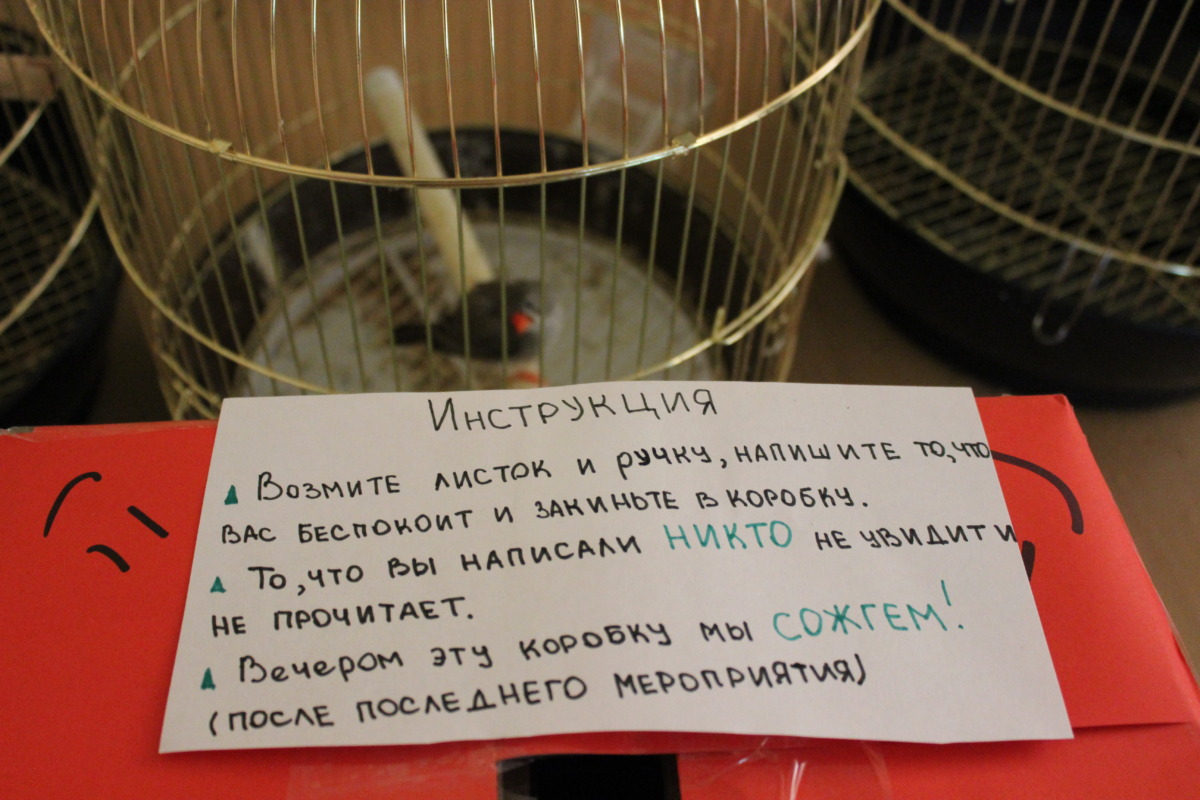 Инструкция
Возмите листок и ручку, напишите то, что
вас беспокоит и закиньте в коробку.
То, что вы написали НИКТО не увидит и
не прочитает.
Вечером эту коробку мы СОЖГЕМ!
(после последнего мероприятия)